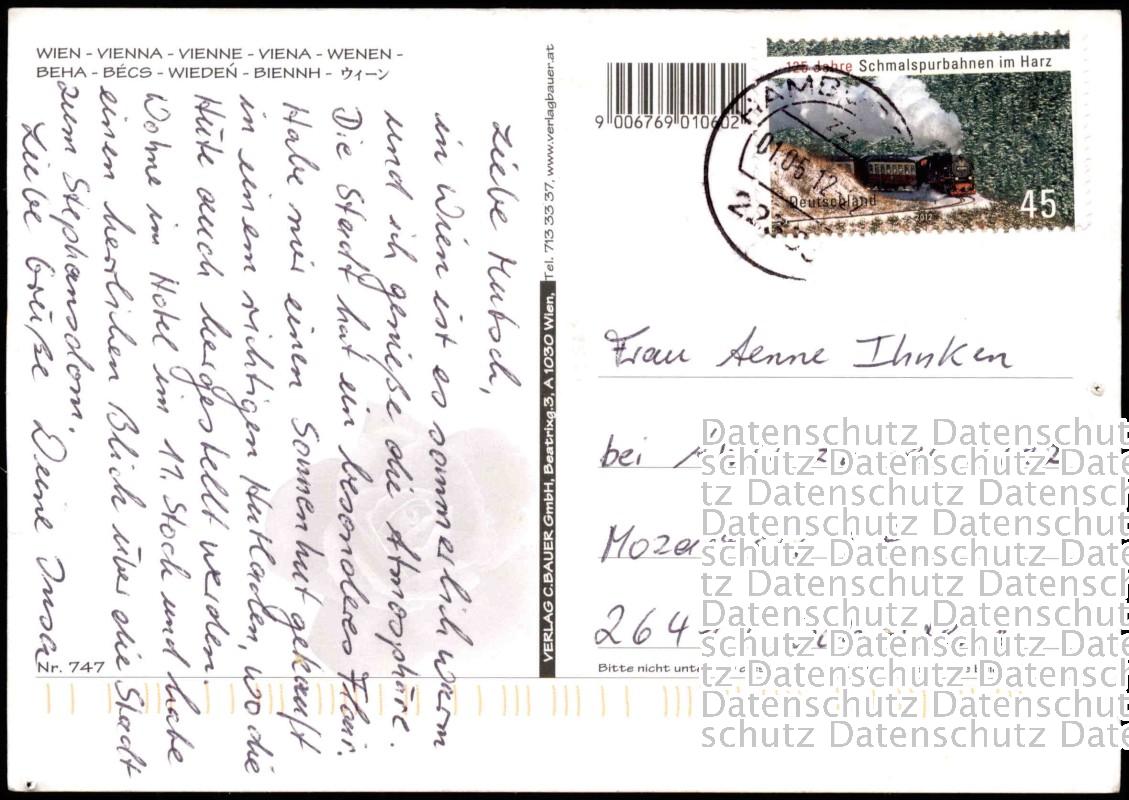 WIEN - VIENNA - VIENNE - VIENA - WENEN -
BEHA - BÉCS - WIEDEŃ - BIENNH - ウィーン
Liebe Mutsch,
in Wien ist es sommerlich warm
und ich genieße die Atmosphäre.
Die Stadt hat ein besonderes Flair.
Habe mir einen Sonnenhut gekauft
in einem richtigen Hutladen, wo die
Hüte auch hergestellt werden.
Wohne im Hotel im 11. Stock und habe
einen herrlichen Blick über die Stadt
zum Stephansdom.
Liebe Grüße Deine Insa
Nr. 747
VERLAG C.BAUER GmbH, Beatrixg.3, A 1030 Wien, Tel. 713 33 37, www.verlagbauer.at
9 006769 010602
125 Jahre Schmalspurbahnen im Harz
Deutschland
2012
45
HAMBU
01.05.12
22
Frau Aenne Ihnken
bei
Moza
264
Bitte nicht unte
Datenschutz Datenschutz
schutz Datenschutz Date
tz Datenschutz Datensc
Datenschutz Datenschutz
schutz Datenschutz Date
tz Datenschutz Datensc
Datenschutz Datenschutz
schutz Datenschutz Date
tz Datenschutz Datensc
Datenschutz Datenschutz
schutz Datenschutz Date